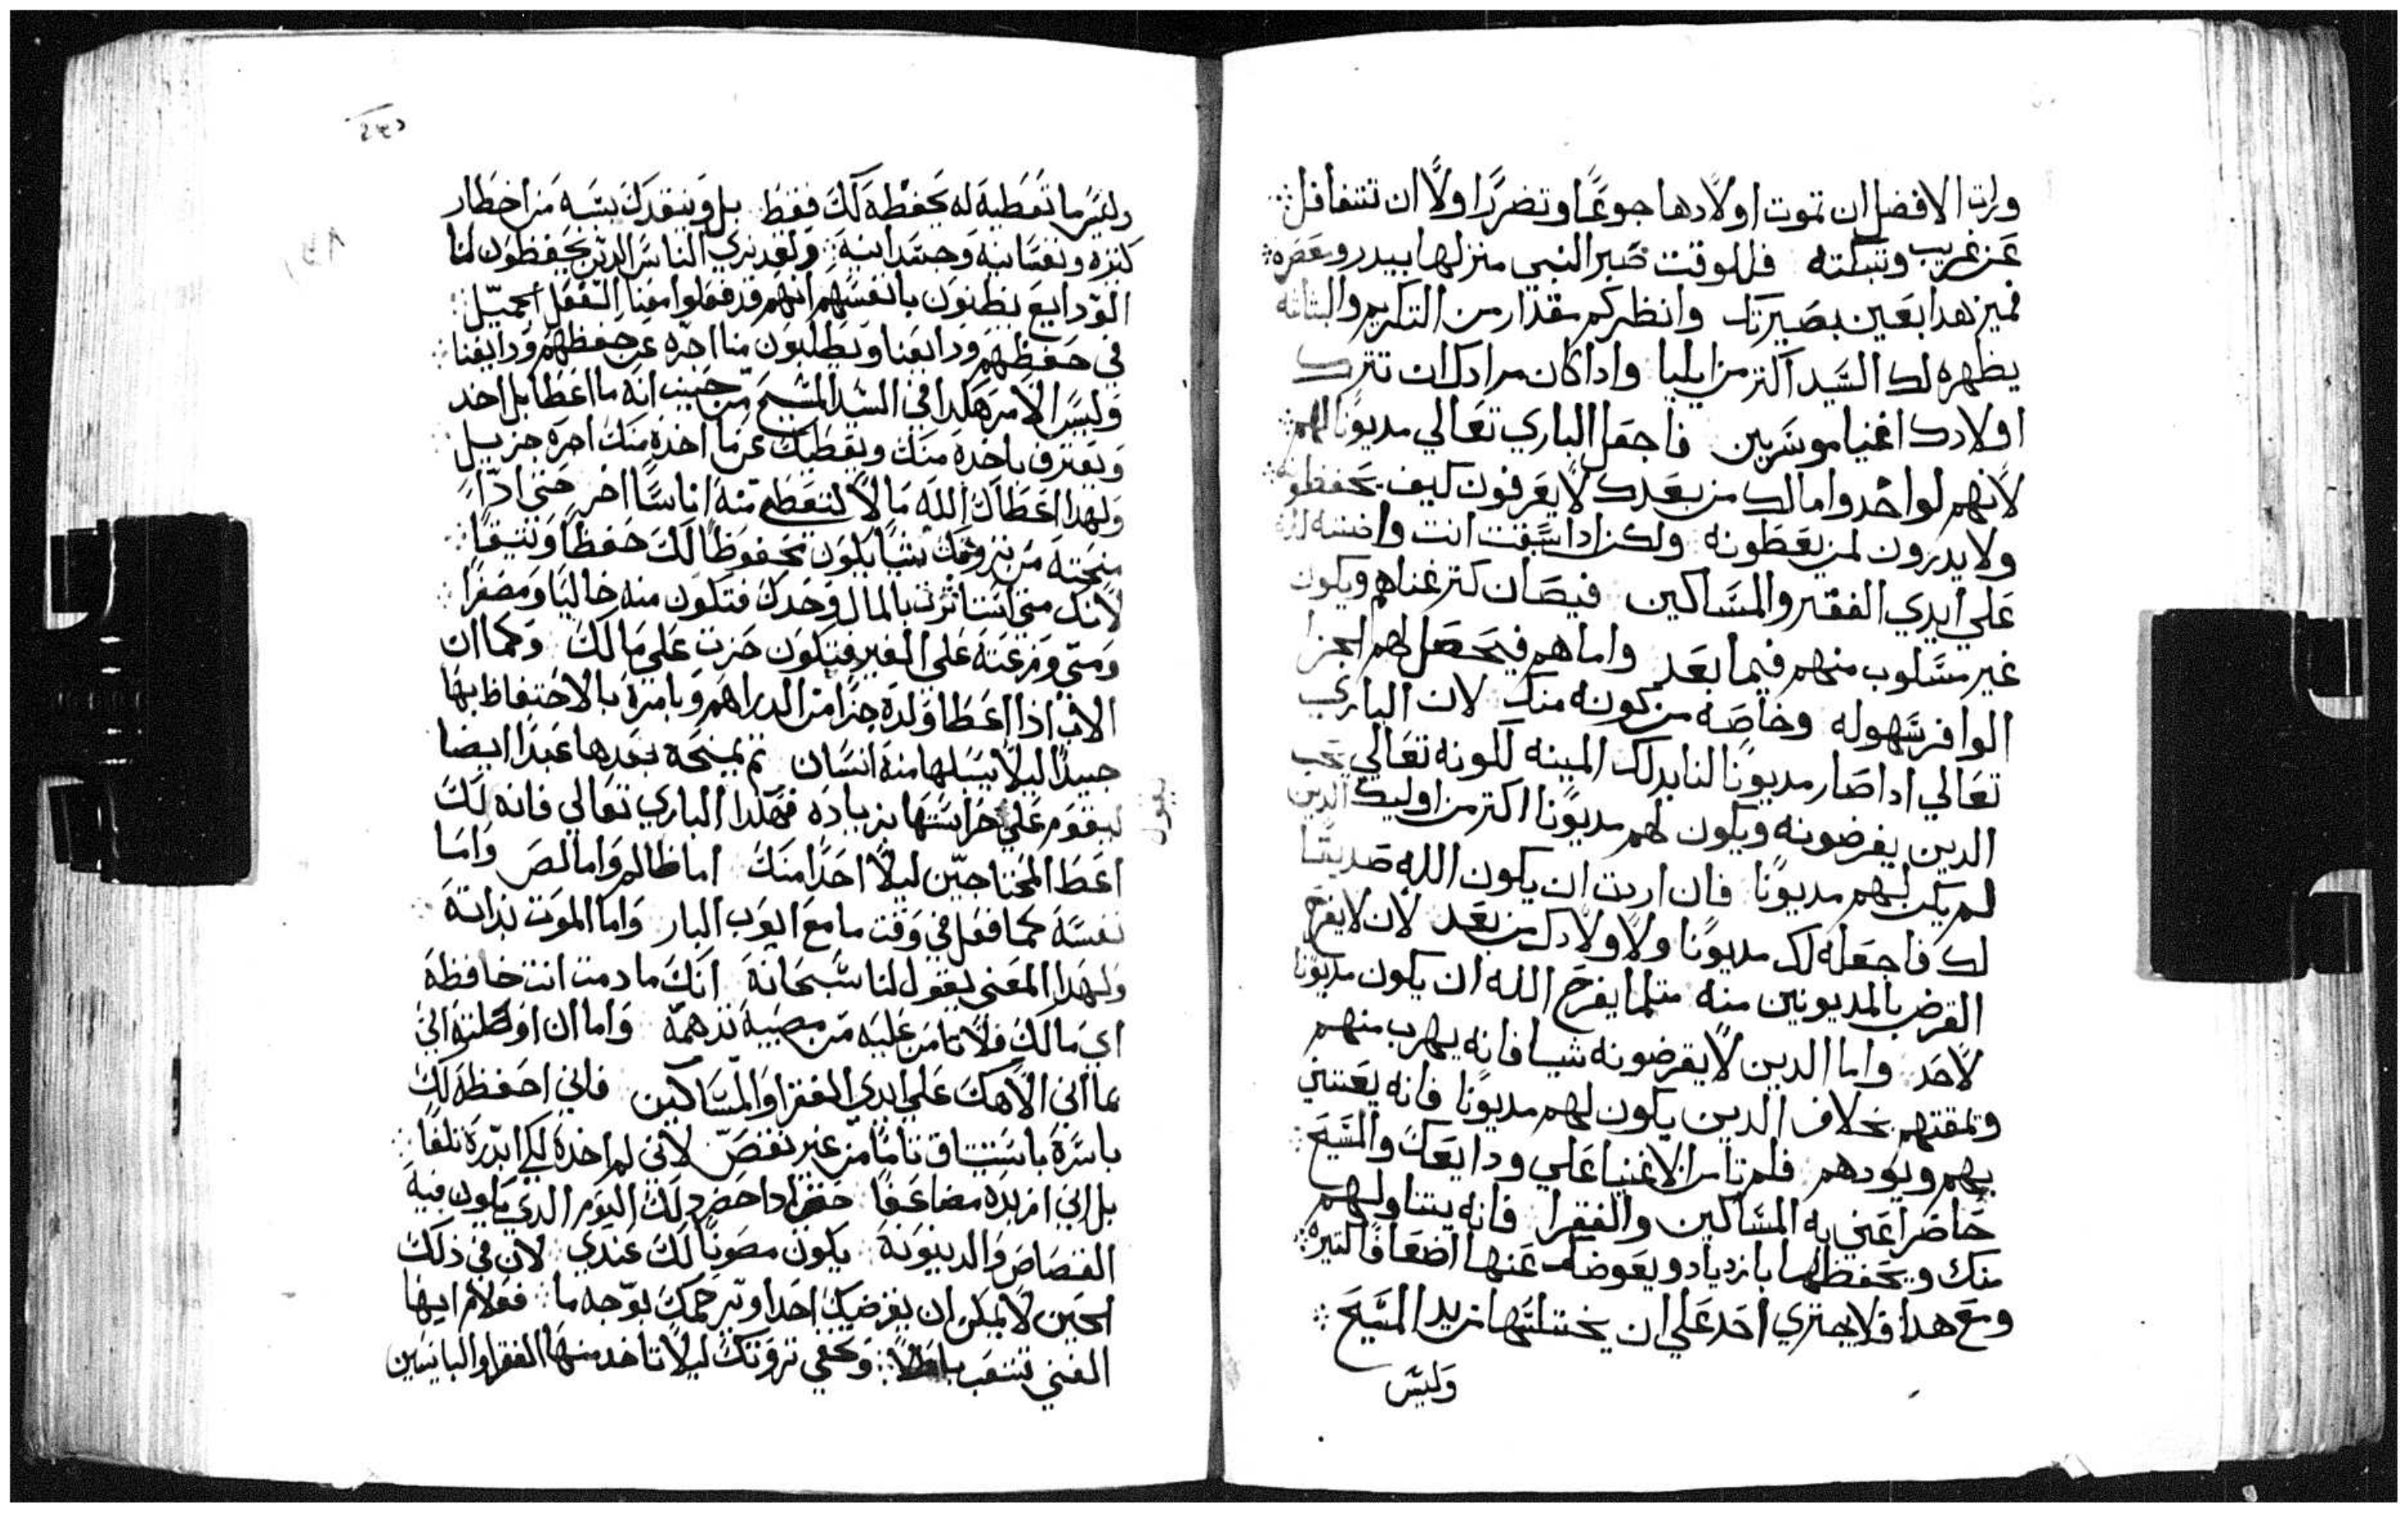 ورات الافضل ان تموت اولادها جوعًا وتضررًا ولا ان تتغافل
عن غريب وتبكته فللوقت صير النبي منزلها بيدر وعصره
فميز هدا بعين بصيرتك وانظر كم مقدار من التكريم والبتاته
يظهره لك السيد اكتر من ايليا وادا كان مرادك ان تترك
اولادك اغنيا موسرين فاجعل الباري تعالي مديونًا لهم
لانهم لو اخدوا مالك من بعدك لا يعرفون كيف يحفظوه
ولا يدرون لمن يعطونه ولكن ادا سبقت انت واقنيته لله
علي ايدي الفقر والمساكين فيصان كتر غناهم ويكون
غير مسلوب منهم فيما بعد واما هم فيحصل لهم الجزا
الوافر بسهوله وخاصه من كونه منك لان الباري
تعالي ادا صار مديونًا لنا بدلك المينه لكونه تعالي يحب
الدين يقرضونه ويكون لهم مديونًا اكتر من اوليك الدين
لم يكن لهم مديونًا فان اردت ان يكون الله صديقًا
لك فاجعله لك مديونًا ولاولادك من بعد لان لا يفرح
القرض بالمديونين منه متلما يفرح الله ان يكون مديونًا
لاحد واما الدين لا يقرضونه شيا فانه يهرب منهم
ويمقتهم بخلاف الدين يكون لهم مديونًا فانه يعتني
بهم ويودهم فلم تامن الاغنيا علي ودايعك والمسيح
حاضرًا عني به المساكين والفقرا فانه يتناولهم
منك ويحفظها بازدياد ويعوضك عنها اضعافًا كتيره
ومع هدا فلا يجتري احد علي ان يختلسها من يد المسيح
وليس
وليس ما تعطيه له يحفظه لك فقط بل وينقدك بسبه من اخطار
كتيره ونفسانيه وجسدانيه ولقد نري الناس الدين يحفظون لنا
الودايع يظنون بانفسهم انهم قد فعلوا معنا الفعل الجميل
في حفظهم ودايعنا ويطلبون منا اجره عن حفظهم ودايعنا
وليس الامر هكدا في السيد المسيح من حيث انه ما اعطا بل اخد
ويعترف باخده منك ويعطيك عن ما اخده منك اجره جزيل
ولهدا اعطاك الله مالًا لتعطي منه اناسًا اخر حتي ادا
منحته من ثروتك شيا يكون محفوظًا لك حفظًا وثيقًا
لانك متي استاثرت بالمال وحدك فتكون منه خاليًا ومصفرًا
ومتي وزعته علي الغير فتكون حزت علي مالك وكما ان
الاب اذا اعطا ولده جزًا من الدراهم ويامره بالاحتفاظ بها
جيدًا ليلا يسلبها منه انسان ثم يمنحه بعدها عبدًا ايضا
ليقوم علي حراستها بزياده فهكدا الباري تعالي فانه لك
يقول
اعط المحتاجين ليلا احدًا منك اما ظالم واما لص واما
نفسه كما فعل في وقت ما مع ايوب البار واما الموت بذاته
ولهدا المعني يقول لنا سبحانه انك ما دمت انت حافظه
اي مالك فلا تامن عليه من مصيبه تدهمه واما ان اوصلته الي
بما اني الاهك علي ايدي الفقرا والمساكين فاني احفظه لك
باسره باستيثاق تامًا من غير نقص لاني لم اخده لكي ابدره تلفًا
بل اني ازيده مضاعفًا حتي ادا حضر دلك اليوم الدي يكون فيه
القصاص والدينونه يكون مصونًا لك عندي لان في ذلك
الحين لا يمكن ان يقرضك احدًا ويرحمك بوجه ما فعلام ايها
الغني تتعب باطلًا وتخفي ثروتك ليلا تاخد منها الفقرا والبايسين